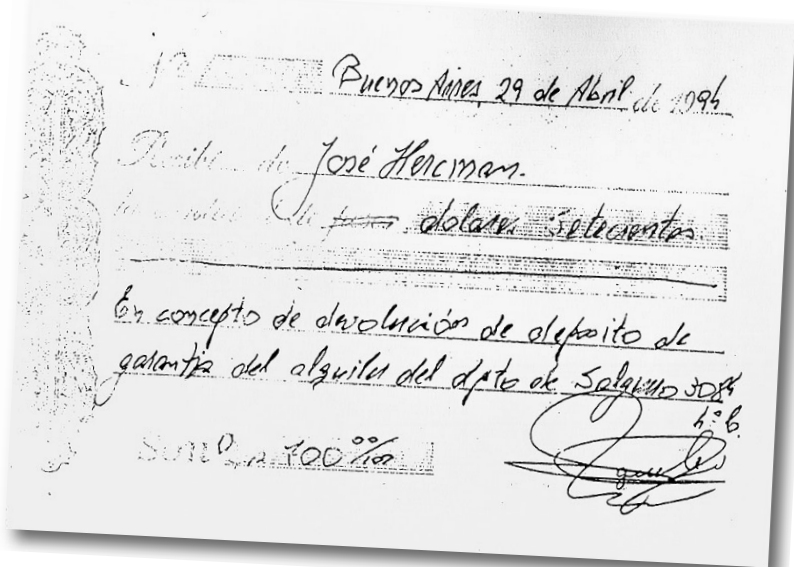 Nº Buenos Aires, 29 de Abril de 1994
Recibí de José Hercman.
la cantidad de pesos dolares setecientos.
En concepto de devolución de deposito de
garantía del alquiler del dpto de Salguero 3084
4º 6.
Son U$ 700 00/100